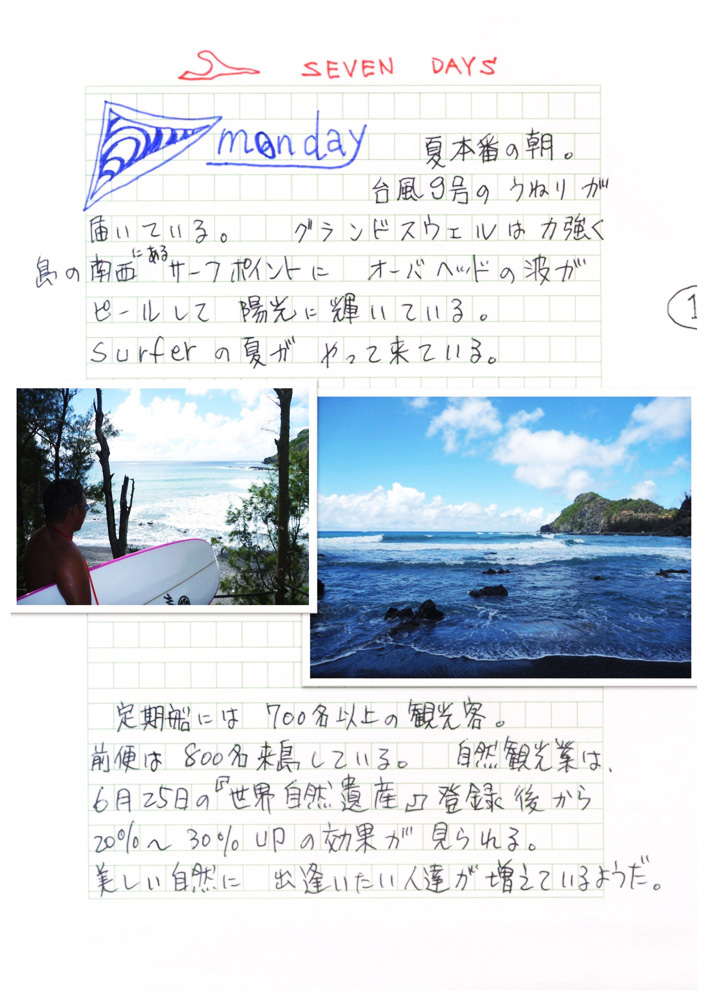 SEVEN DAYS
monday
夏本番の朝。
台風9号のうねりが
届いている。 グランドスウェルは力強く
島の南西にあるサーフポイントに オーバヘッドの波が
ピールして 陽光に輝いている。
surferの夏が やって来ている。
1
定期船には 700名以上の観光客。
前便は 800名来島している。 自然観光業は、
6月25日の『世界自然遺産』登録後から
20%～30%UPの効果が見られる。
美しい自然に 出逢いたい人達が増えているようだ。